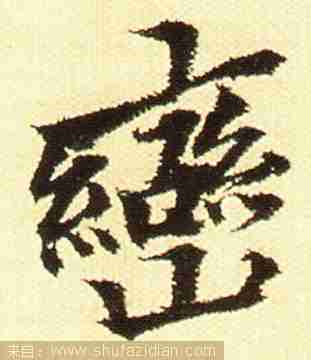 巒
来自：www.shufazidian.com